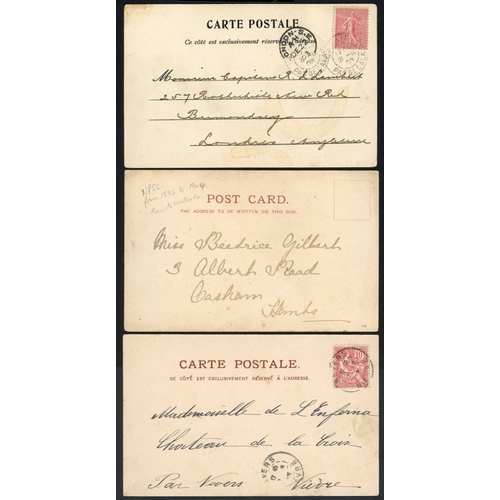 CARTE POSTALE
Ce côté est exclusivement réservé
LONDON. S.E.
Monsieur Capitaine R. L.
257 Rotherhithe New Rd
Bermondsey
Londres Angleterre
POST CARD.
THE ADDRESS TO BE WRITTEN ON THIS SIDE.
from 1892
Miss Beatrice Gilbert
3 Albert Road
Cosham
Hants
CARTE POSTALE.
CE CÔTÉ EST EXCLUSIVEMENT RÉSERVÉ À L'ADRESSE.
10
Mademoiselle de L'Enferna
Chateau de la Croix
Par Nevers Nièvre